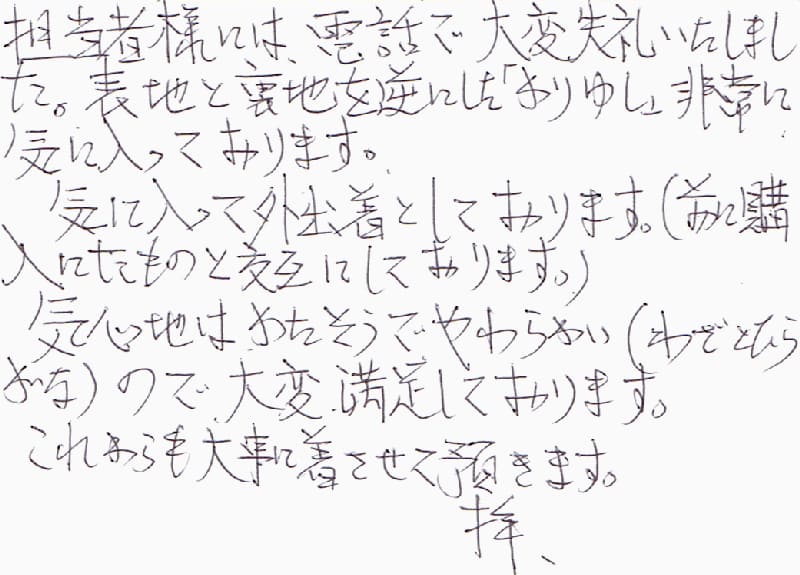 担当者様には、電話で大変失礼いたしまし
た。表地と裏地を逆にした「かりゆし」非常に
気に入っております。
気に入って外出着としております。(前に購
入にたものと交互にしております。)
気心地はかたそうでやわらかい(わざとなら
がな)ので大変満足しております。
これからも大事に着させて預きます。
拝、